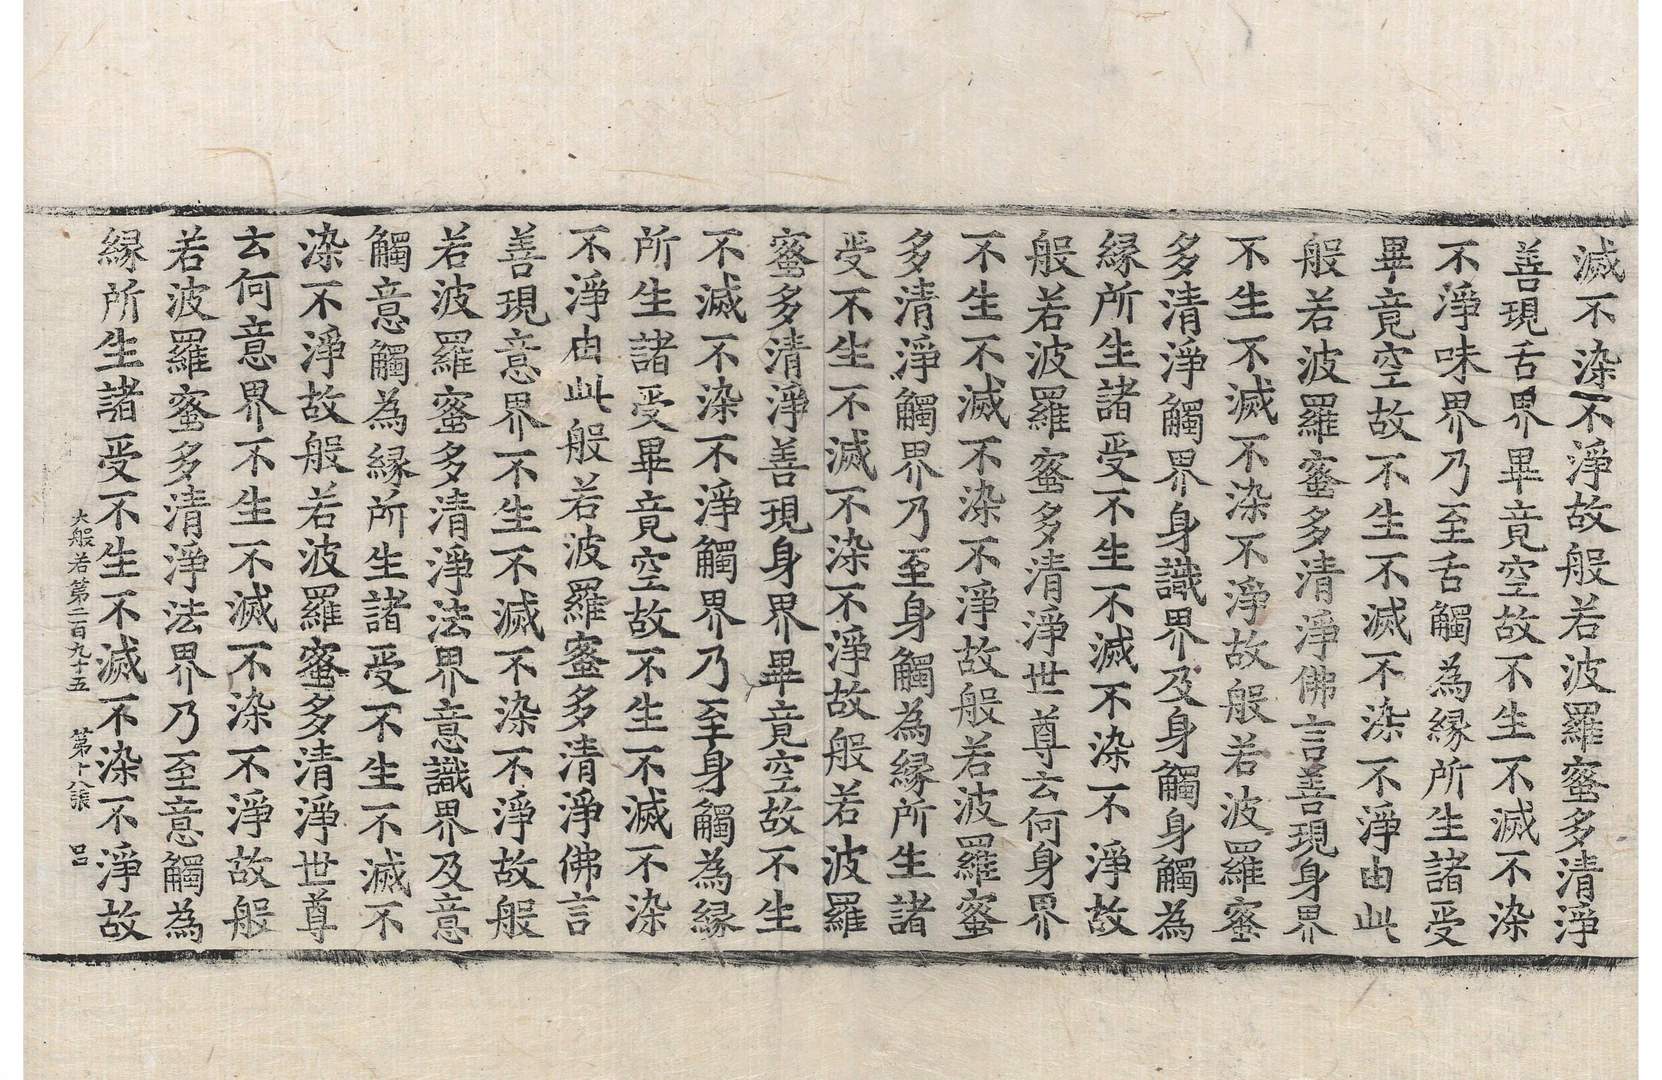 滅不染不淨故般若波羅蜜多清淨
善現舌界畢竟空故不生不滅不染
不淨味界乃至舌觸為緣所生諸受
畢竟空故不生不滅不染不淨由此
般若波羅蜜多清淨佛言善現身界
不生不滅不染不淨故般若波羅蜜
多清淨觸界身識界及身觸身觸為
緣所生諸受不生不滅不染不淨故
般若波羅蜜多清淨世尊云何身界
不生不滅不染不淨故般若波羅蜜
多清淨觸界乃至身觸為緣所生諸
受不生不滅不染不淨故般若波羅
蜜多清淨善現身界畢竟空故不生
不滅不染不淨觸界乃至身觸為緣
所生諸受畢竟空故不生不滅不染
不淨由此般若波羅蜜多清淨佛言
善現意界不生不滅不染不淨故般
若波羅蜜多清淨法界意識界及意
觸意觸為緣所生諸受不生不滅不
染不淨故般若波羅蜜多清淨世尊
云何意界不生不滅不染不淨故般
若波羅蜜多清淨法界乃至意觸為
緣所生諸受不生不滅不染不淨故
大般若第二百九十五 第十八張 呂